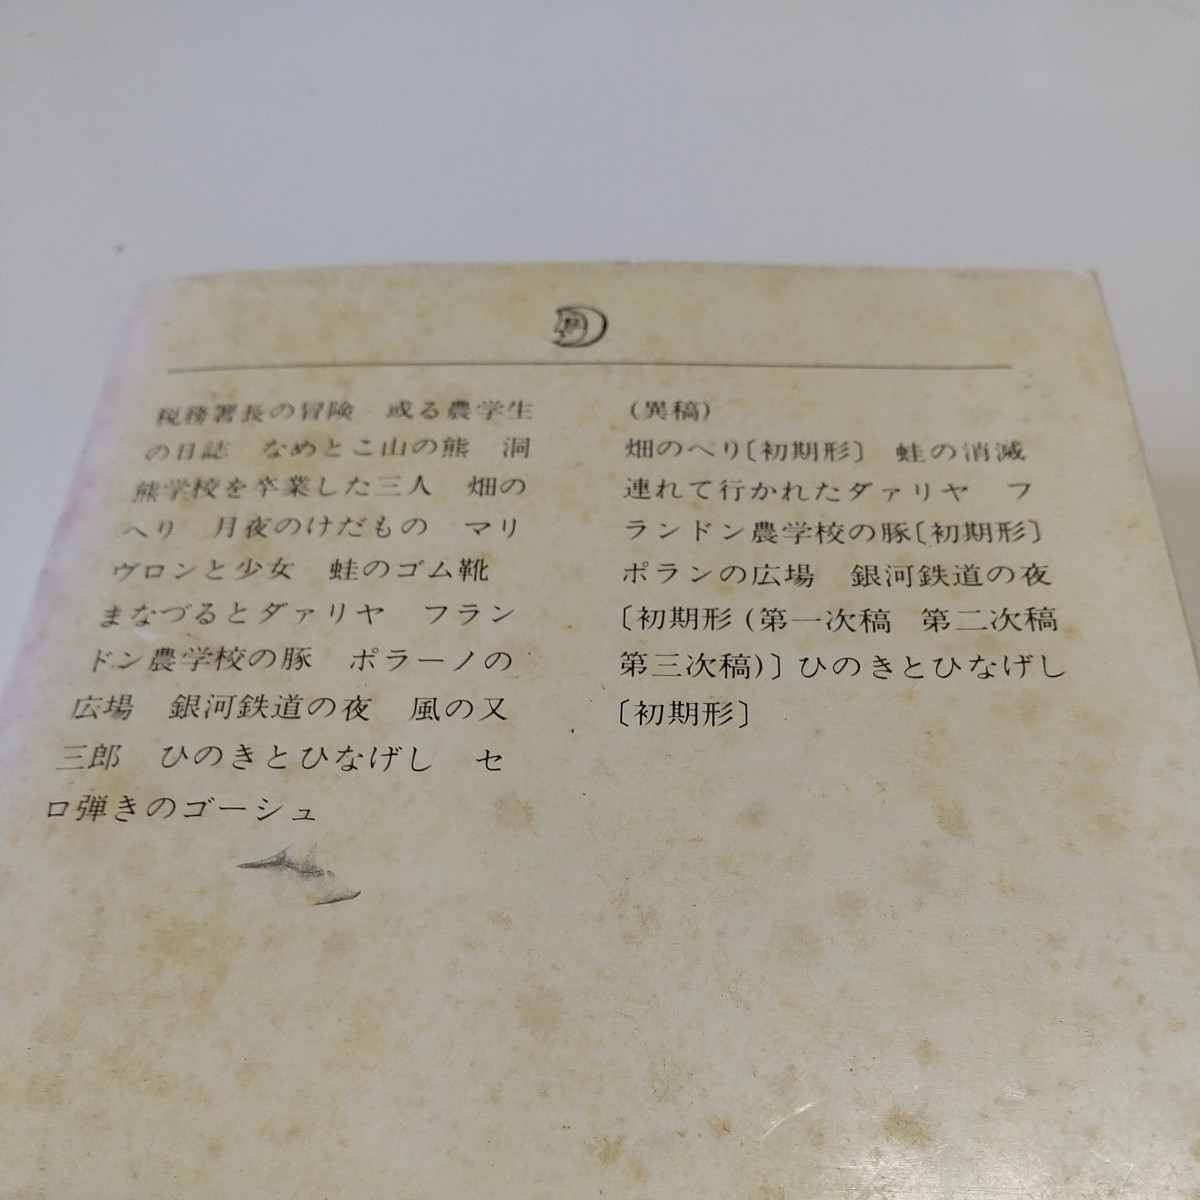 税務署長の冒険　或る農学生
の日誌　なめとこ山の熊　洞
熊学校を卒業した三人　畑の
へり　月夜のけだもの　マリ
ヴロンと少女　蛙のゴム靴
まなづるとダァリヤ　フラン
ドン農学校の豚　ポラーノの
広場　銀河鉄道の夜　風の又
三郎　ひのきとひなげし　セ
ロ弾きのゴーシュ
(異稿)
畑のへり〔初期形〕　蛙の消滅
連れて行かれたダァリヤ　フ
ランドン農学校の豚〔初期形〕
ポランの広場　銀河鉄道の夜
〔初期形(第一次稿　第二次稿
第三次稿)〕ひのきとひなげし
〔初期形〕